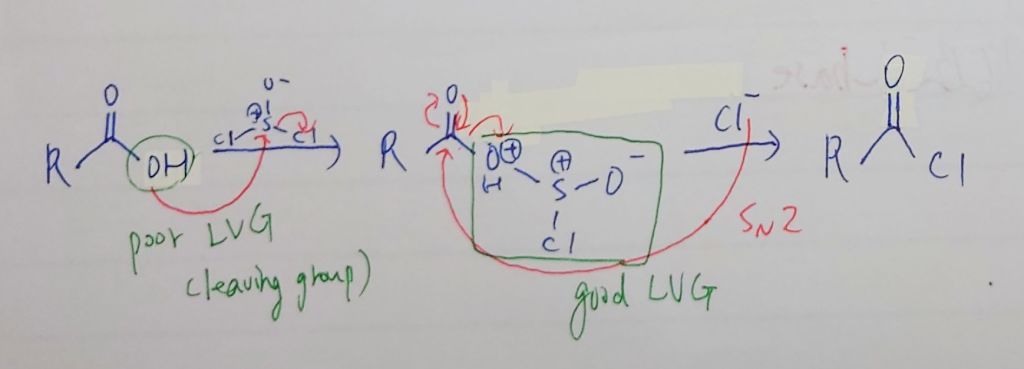 O O⁻ O O
R OH Cl ⊕S Cl R O⊕ H ⊕S O⁻ Cl Cl⁻ R Cl
SN2
poor LVG
(leaving group)
good LVG